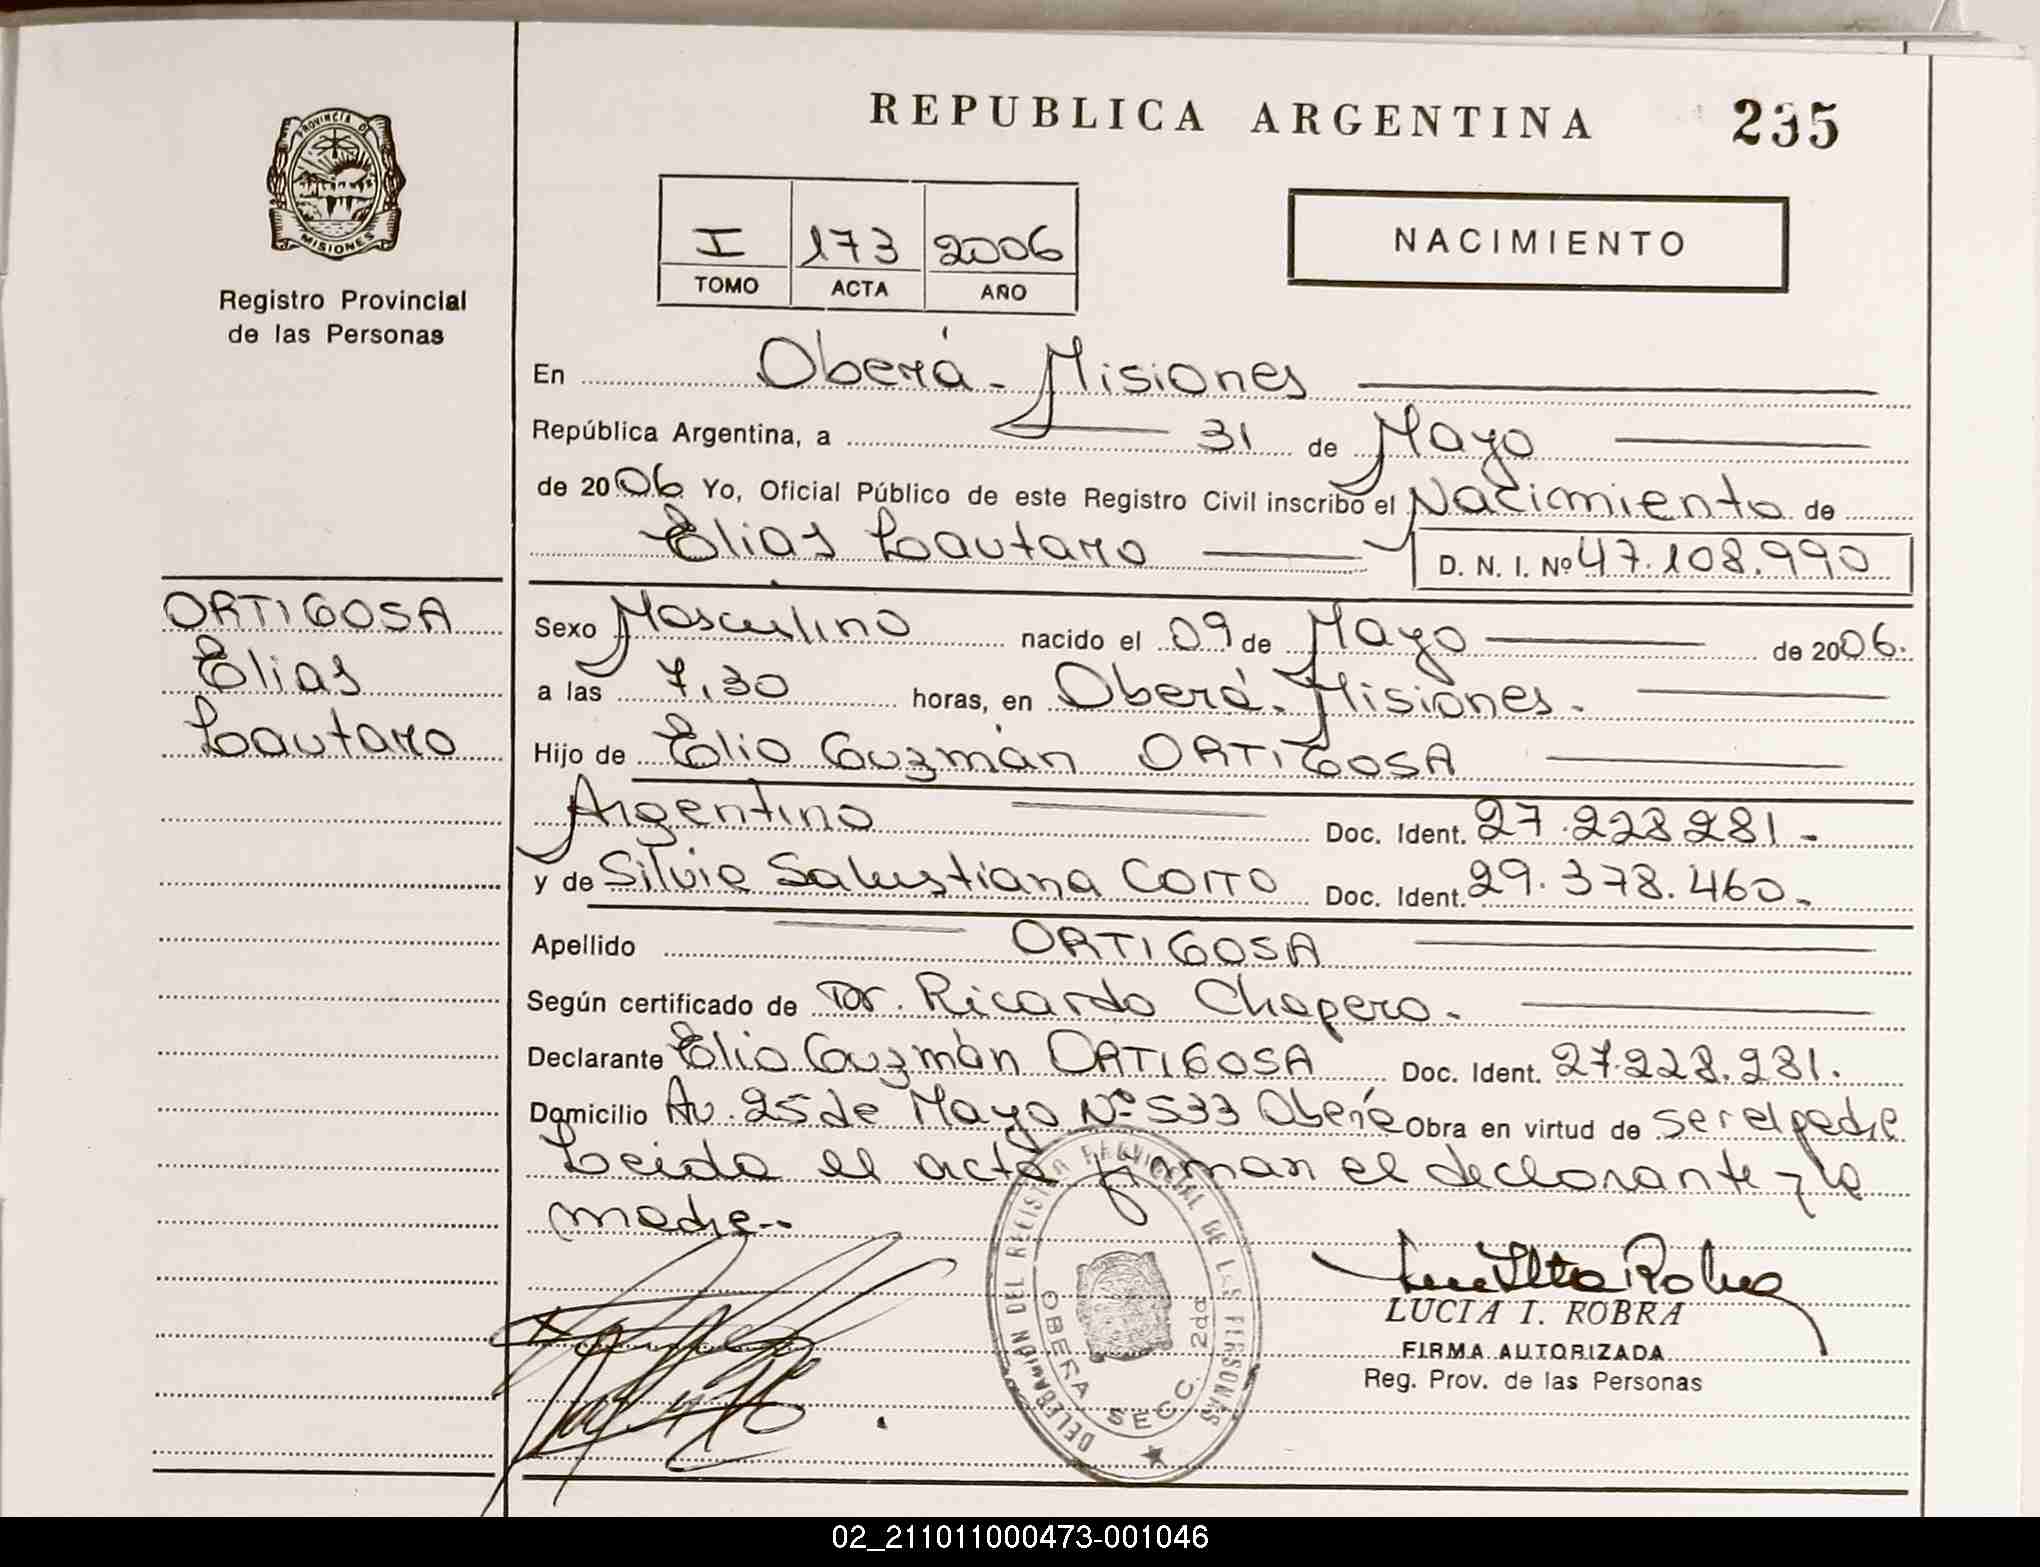 REPUBLICA ARGENTINA
235
PROVINCIA DE
MISIONES
Registro Provincial
de las Personas
I 173 2006
TOMO ACTA AÑO
NACIMIENTO
En Oberá - Misiones
República Argentina, a 31 de Mayo
de 2006 Yo, Oficial Público de este Registro Civil inscribo el Nacimiento de
Elias Lautaro D. N. I. Nº 47.108.990
ORTIGOSA
Elias
Lautaro
Sexo Masculino nacido el 09 de Mayo de 2006.
a las 7,30 horas, en Oberá - Misiones.
Hijo de Elio Guzmán ORTIGOSA
Argentino Doc. Ident. 27.228.281.-
y de Silvia Salustiana Corro Doc. Ident. 29.378.460.-
Apellido ORTIGOSA
Según certificado de Dr. Ricardo Chapero.
Declarante Elio Guzmán ORTIGOSA Doc. Ident. 27.228.281.
Domicilio Av. 25 de Mayo Nº 533 Oberá Obra en virtud de ser el padre
Leida el acta firman el declarante y la
madre.-
DELEGACIÓN DEL REGISTRO PROVINCIAL DE LAS PERSONAS
OBERA SECC. 2da
LUCIA I. ROBRA
FIRMA AUTORIZADA
Reg. Prov. de las Personas
02_211011000473-001046